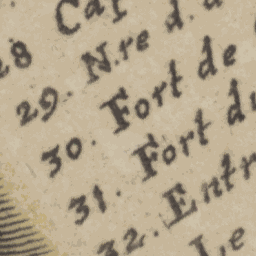 28 Cap
29. N.re d. d
30. Fort de
31. Fort du
32. Entr
Le